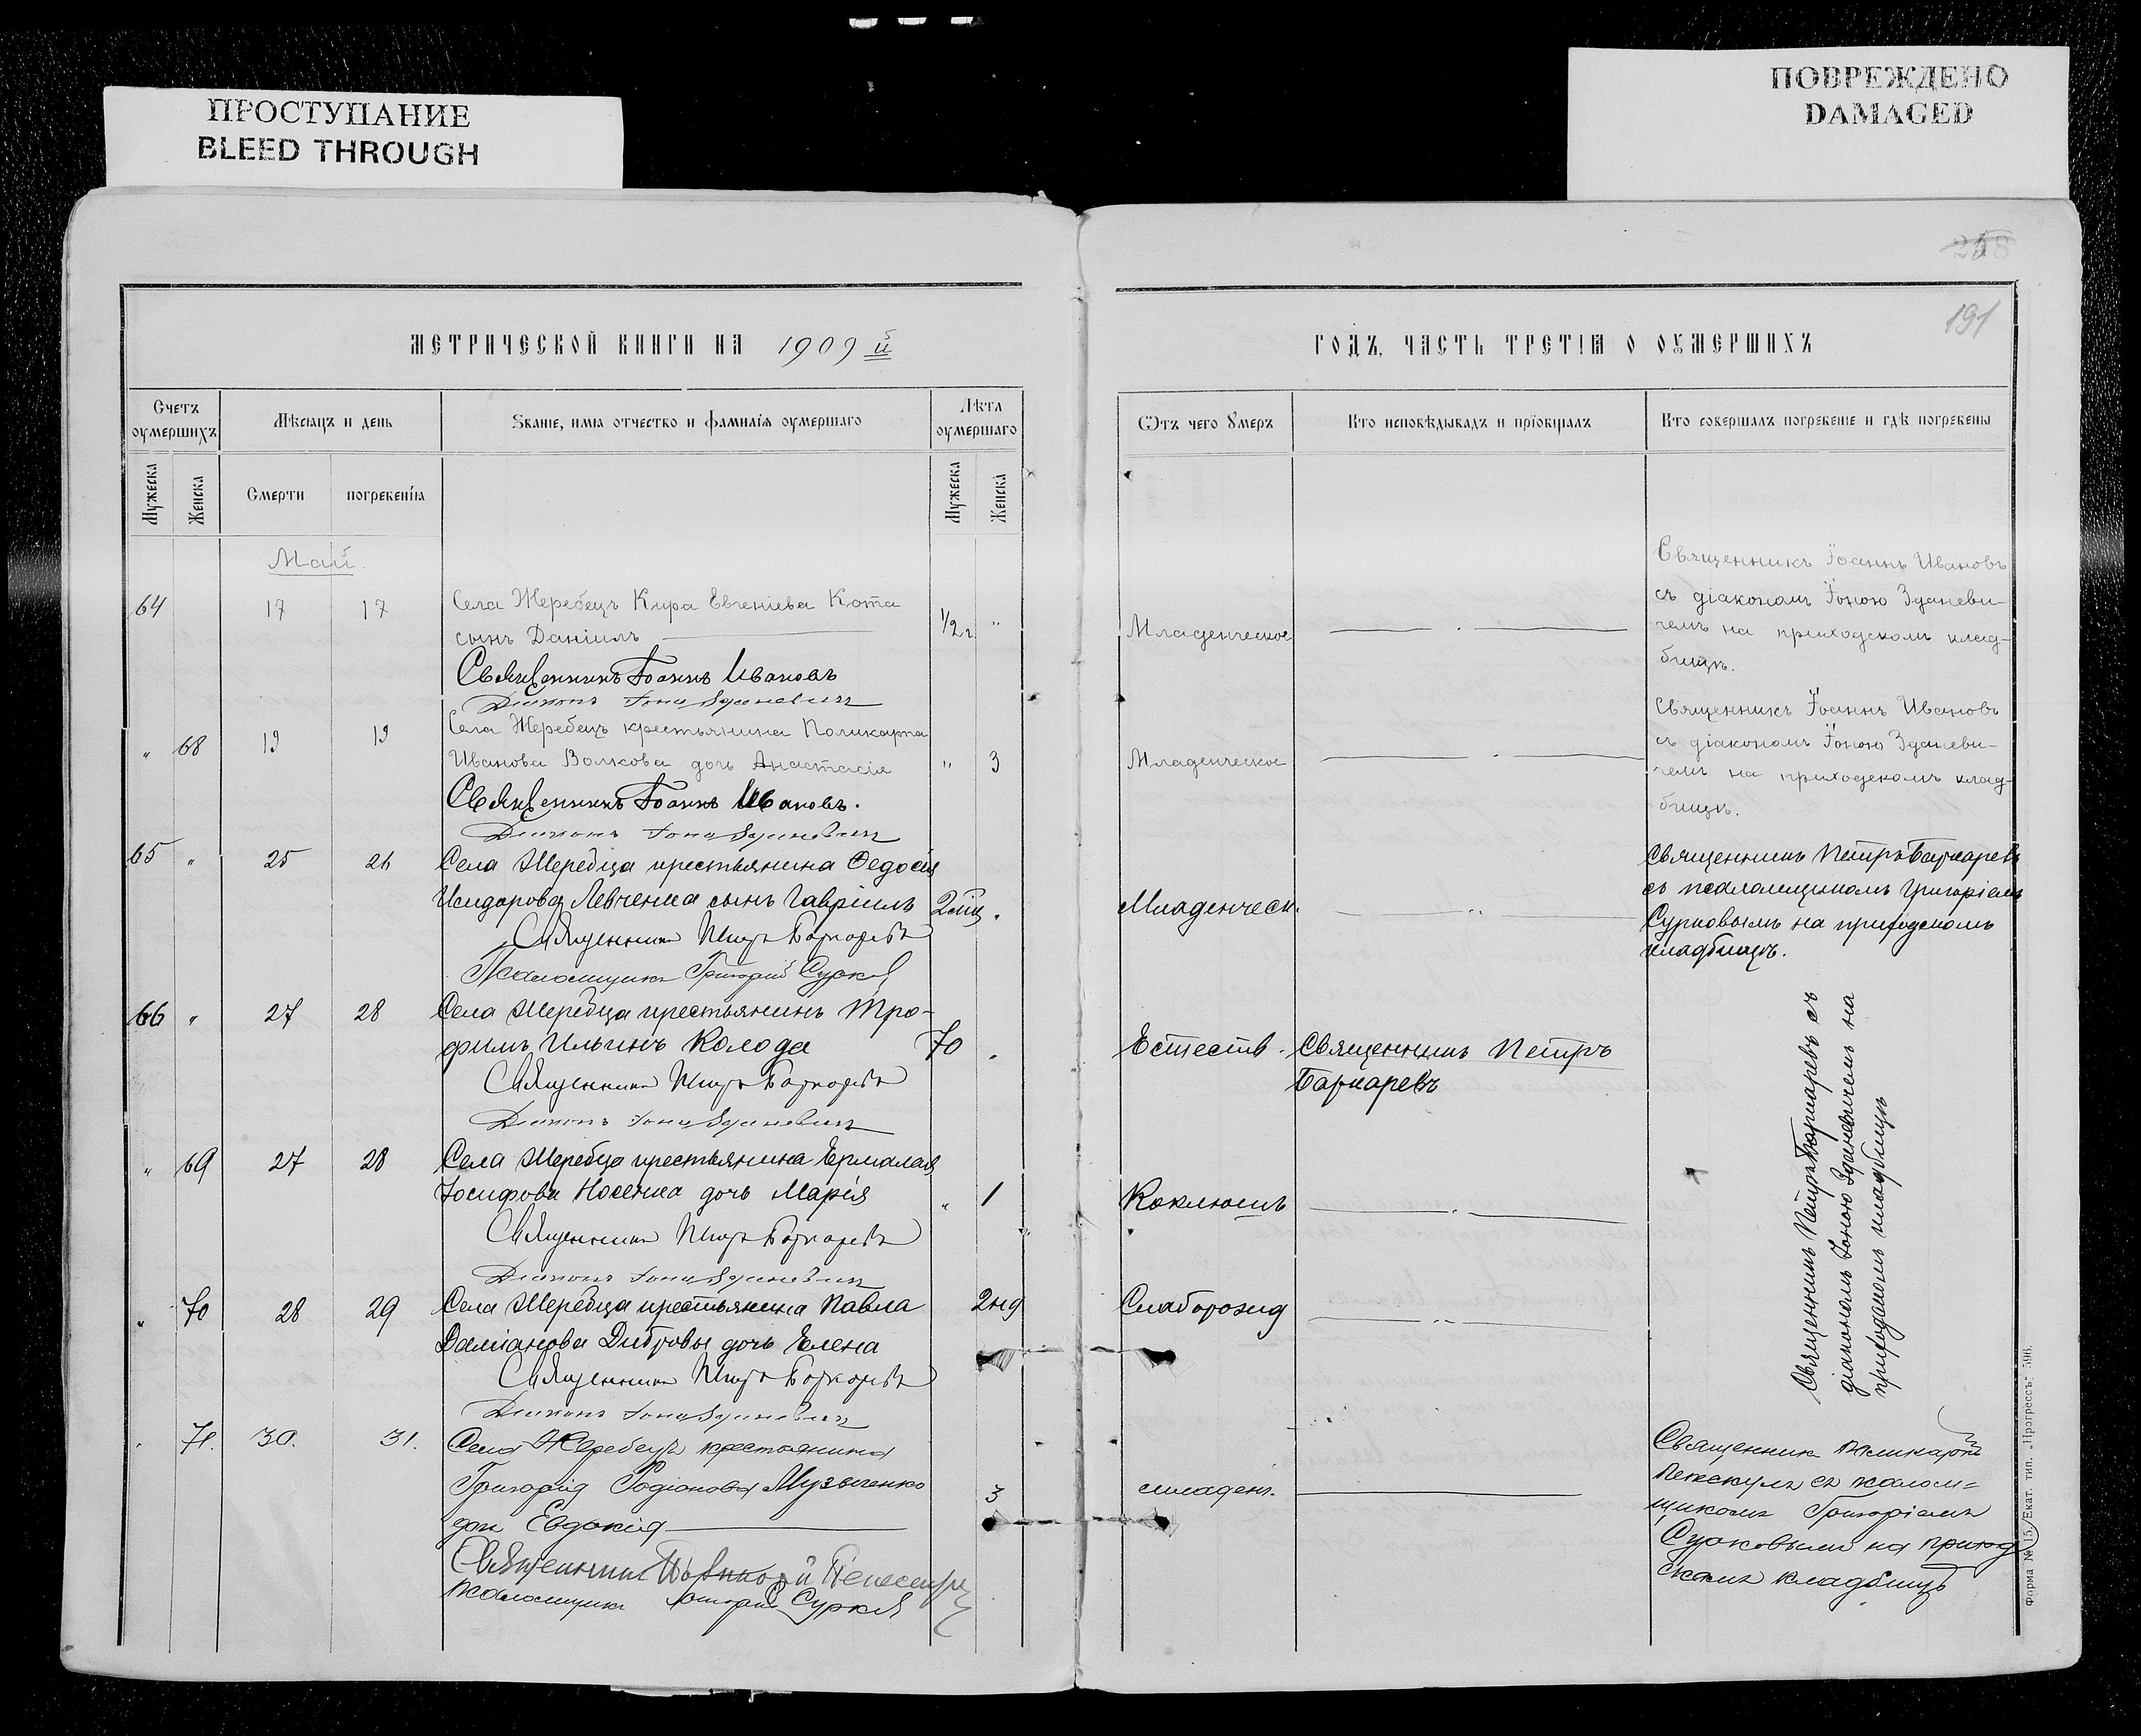 ПРОСТУПАНИЕ
BLEED THROUGH
ПОВРЕЖДЕНО
DAMAGED
191
МЕТРИЧЕСКОЙ КНИГИ НА 1909 й
ГОДЪ, ЧАСТЬ ТРЕТІЯ О ОУМЕРШИХЪ
Счетъ оумершихъ
Мѣсяцъ и день
Званіе, имя отчество и фамилія оумершаго
Лѣта оумершаго
Мужеска
Женска
Смерти
погребенія
Мужеска
Женска
Ѿтъ чего Умеръ
Кто исповѣдывалъ и пріобщалъ
Кто совершалъ погребеніе и гдѣ погребены
Май.
64 17 17 Села Жеребецъ Кира Евгеніева Кота
сынъ Даніилъ 1/2 г. "
Священникъ Іоаннъ Ивановъ
Діаконъ Іона Зданевичъ
Младенческое
Священникъ Іоаннъ Ивановъ
съ діакономъ Іоною Зданеви-
чемъ на приходскомъ клад-
бищѣ.
" 68 19 19 Села Жеребецъ крестьянина Поликарпа
Иванова Волкова дочь Анастасія " 3
Священникъ Іоаннъ Ивановъ.
Діаконъ Іона Зданевичъ
Младенческое
Священникъ Іоаннъ Ивановъ
съ діакономъ Іоною Зданеви-
чемъ на приходскомъ клад-
бищѣ.
65 " 25 26 Села Жеребца крестьянина Ѳедосія
Исидорова Левченка сынъ Гавріилъ 2 мц.
Священникъ Петръ
Псаломщикъ Григорій Сурков
Младенческ.
Священникъ Петръ
съ псаломщикомъ Григоріемъ
Сурковымъ на приходскомъ
кладбищѣ.
66 " 27 28 Села Жеребца крестьянинъ Тро-
фимъ Ильинъ Колода 70
Священникъ Петръ
Діаконъ Іона Зданевичъ
Естеств. Священникъ Петръ
" 69 27 28 Села Жеребца крестьянина Ермолая
Іосифова Носенка дочь Марія " 1
Священникъ Петръ
Діаконъ Іона Зданевичъ
Коклюшъ
" 70 28 29 Села Жеребца крестьянина Павла 2 нд
Даміанова Дибровы дочь Елена
Священникъ Петръ
Діаконъ Іона Зданевичъ
Слаборожд
Священникъ Петръ съ
діакономъ Іоною Зданевичемъ на
приходскомъ кладбищѣ
71. 30. 31. Села Жеребецъ крестьянина
Григорія Родіонова Музыченко 3
дочь Евдокія
Священникъ
псаломщикъ Григорій Сурков
младенч.
Священник Поликарпъ
съ псалом=
щикомъ Григоріемъ
Сурковымъ на приход
скомъ кладбищѣ
Форма № 15. Екат. тип. „Прогрессъ" 596.